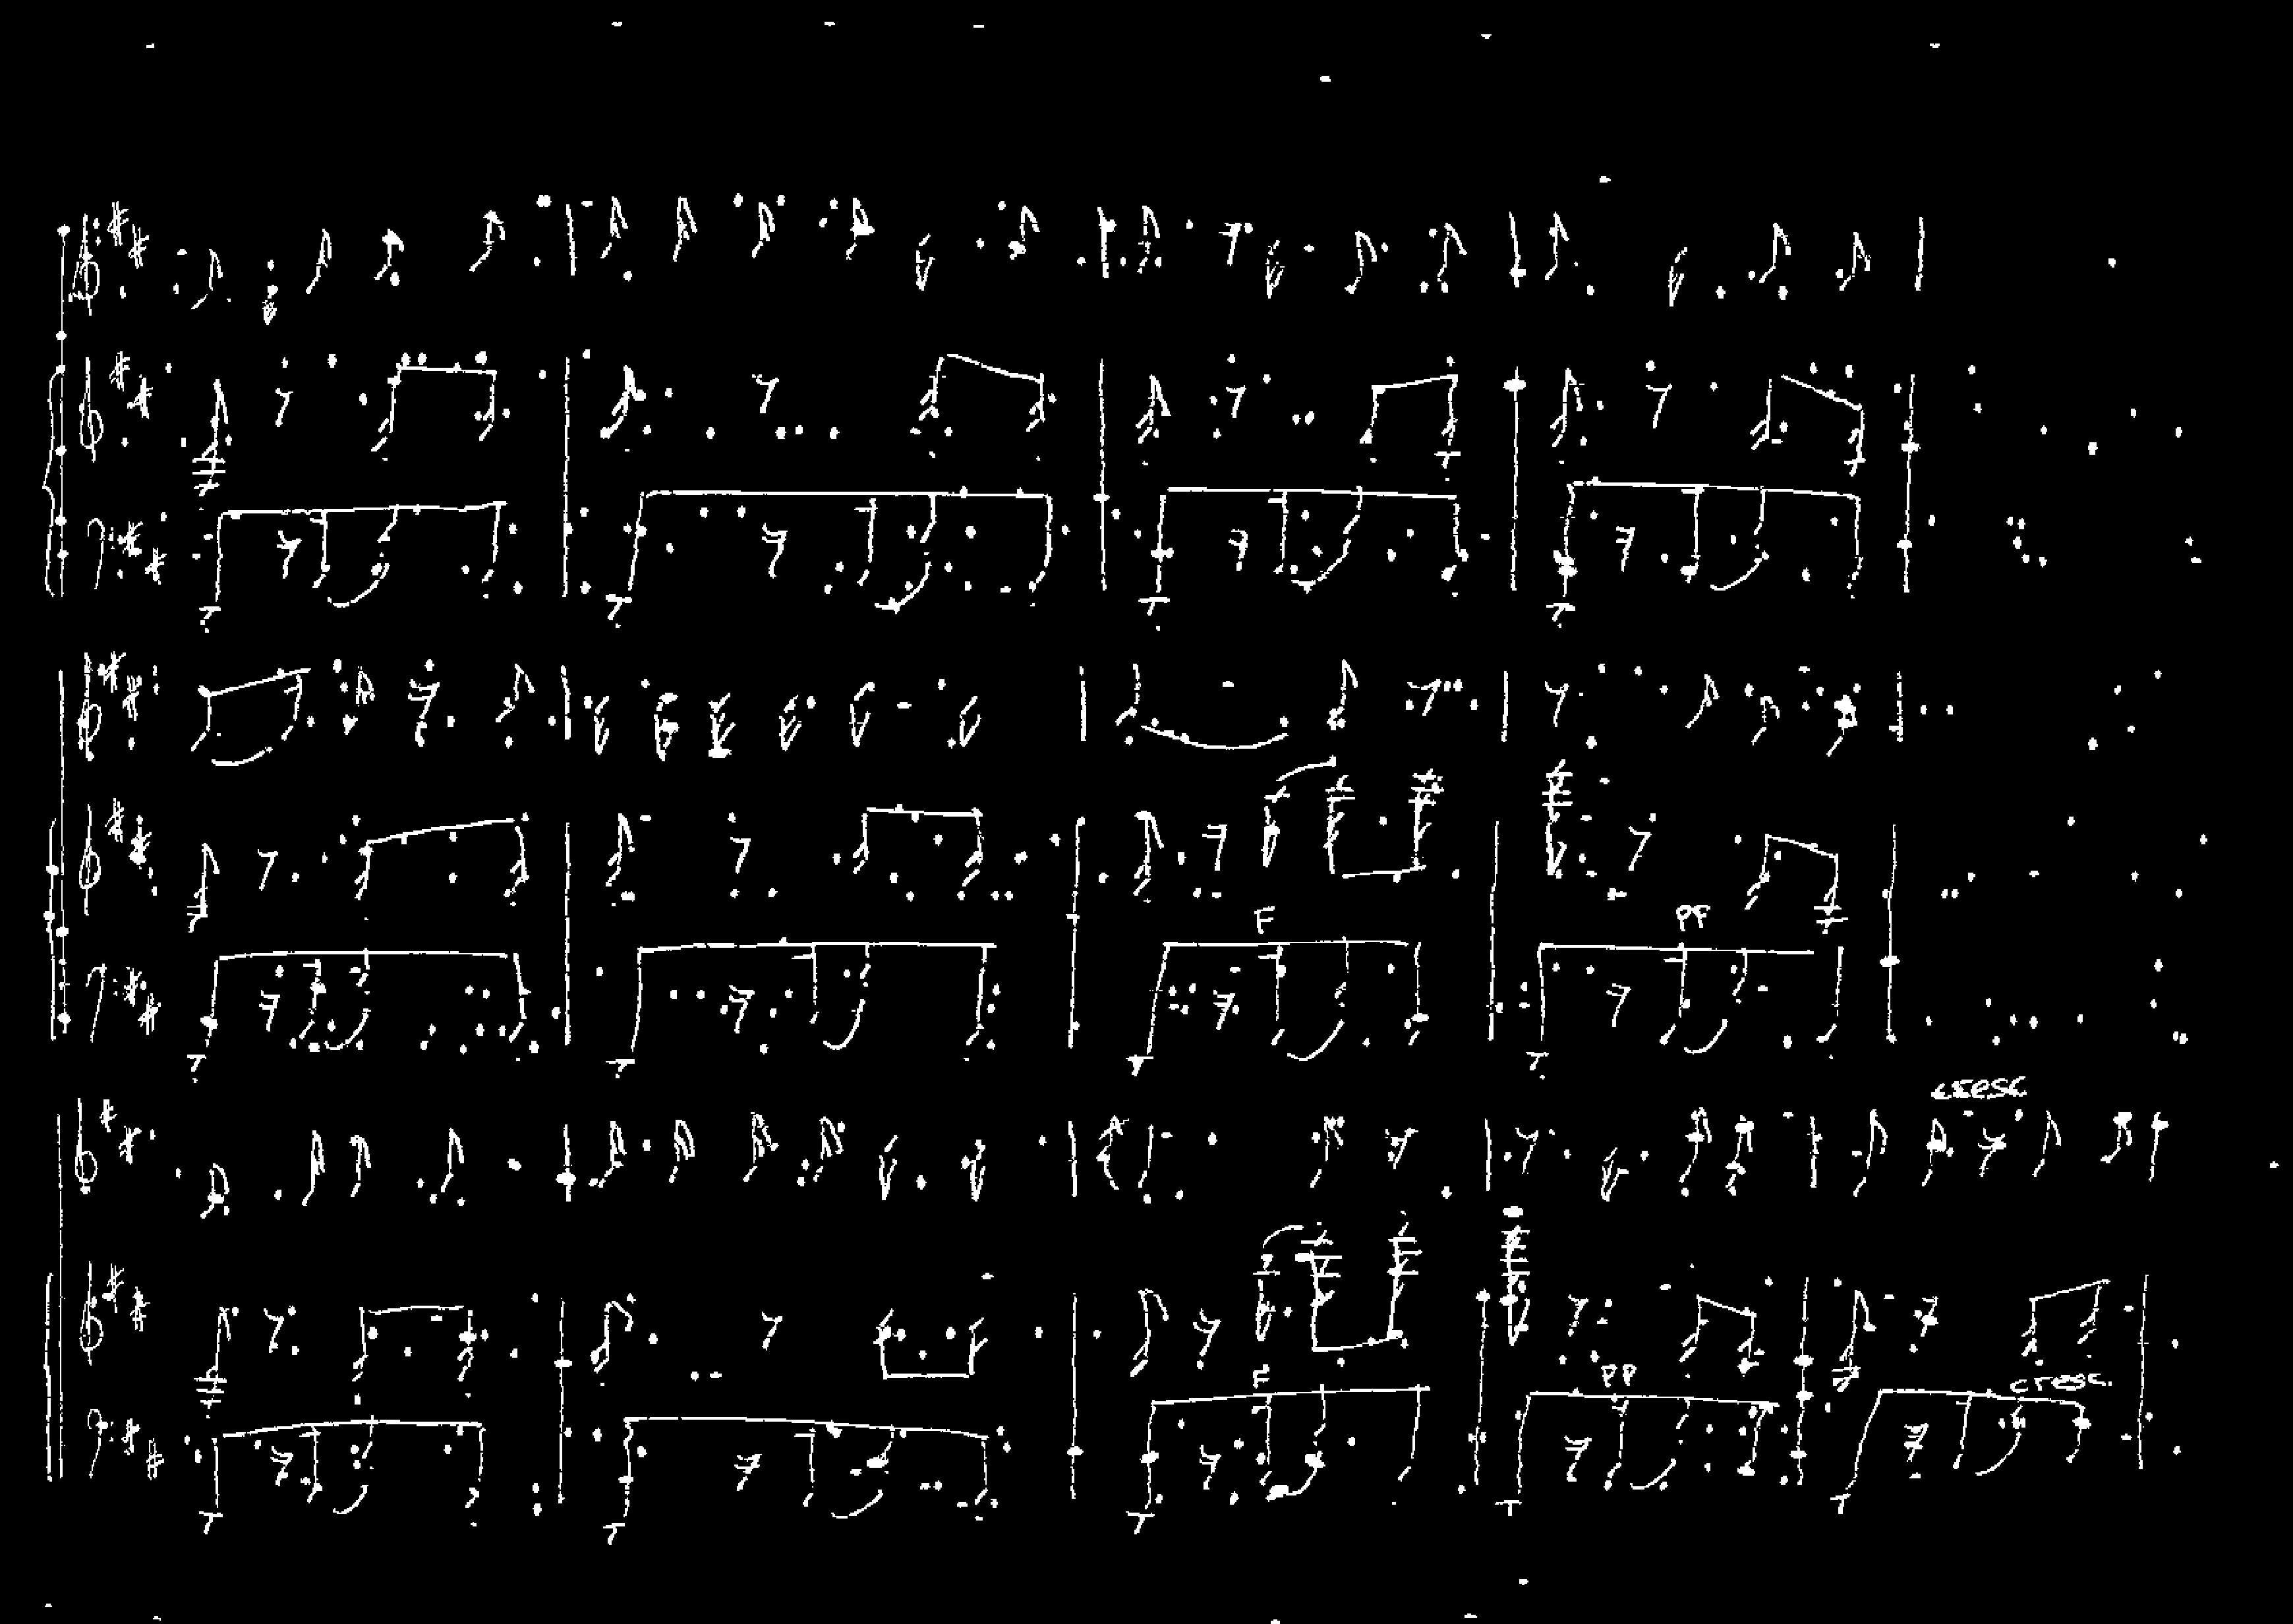 F PF
cresc
F PP cresc.